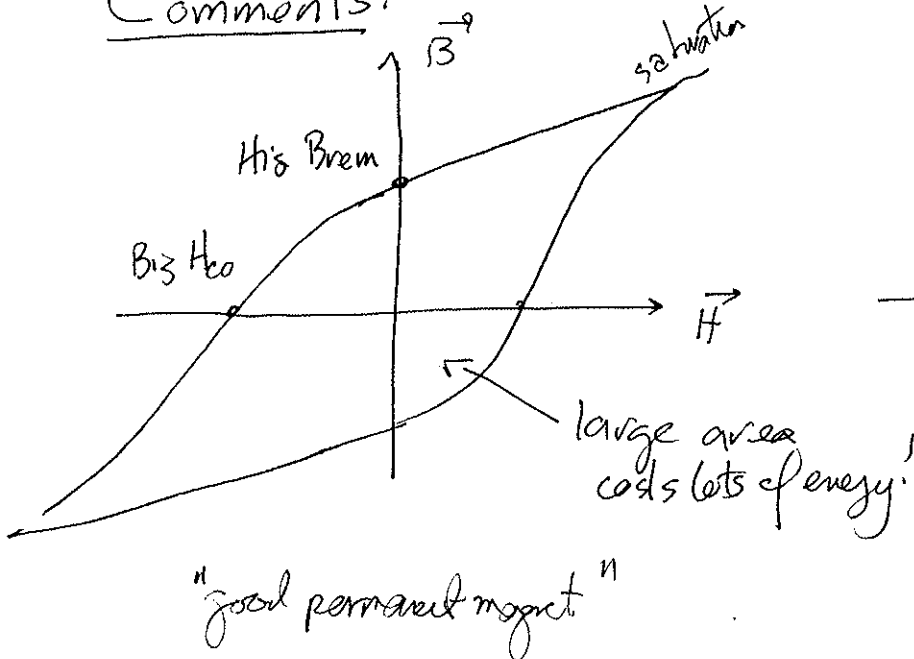 Comments:
B
saturation
High Brem
Big Hco
H
large area
costs lots of energy!
"good permanent magnet"